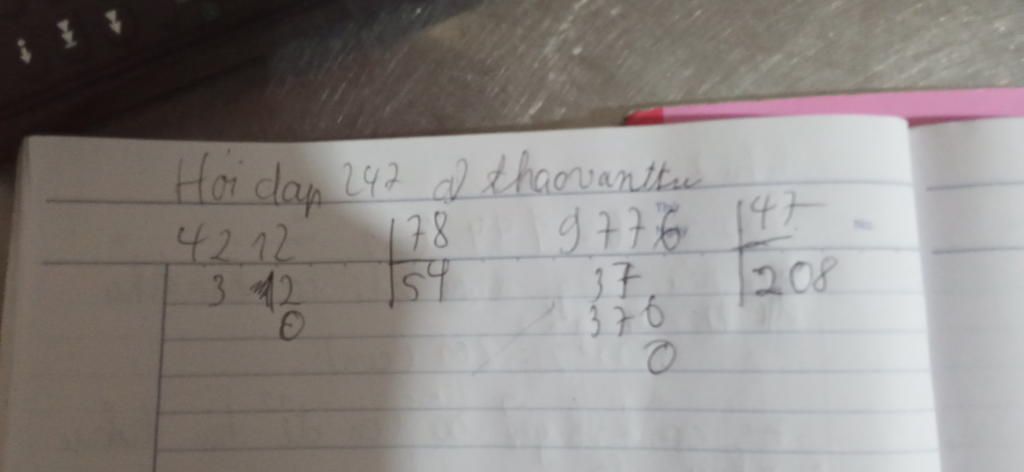 Hỏi dap 247 @ thaovanthu
4212 78 9776 47
312 54 37 208
0 376
0